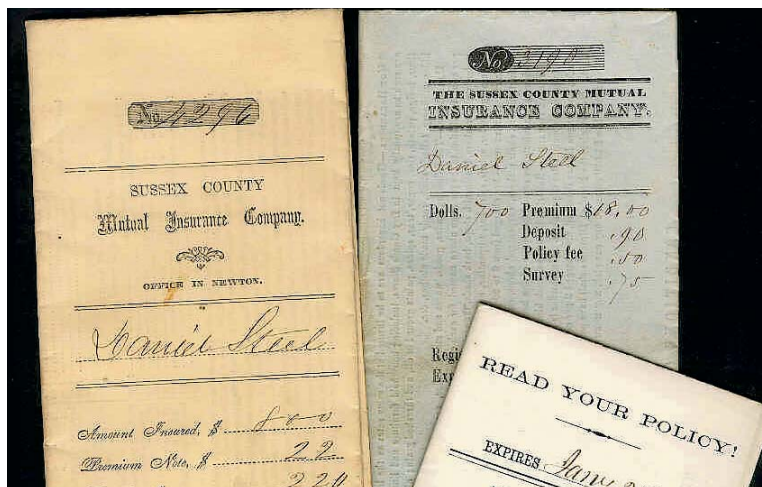 No. 4296
SUSSEX COUNTY
Mutual Insurance Company.
OFFICE IN NEWTON.
Daniel Steel
Amount Insured, $ 800
Premium Note, $ 22
2 20
No. 3198
THE SUSSEX COUNTY MUTUAL
INSURANCE COMPANY.
Daniel Steel
Dolls. 700 Premium $18,00
Deposit .90
Policy fee .50
Survey .75
READ YOUR POLICY!
EXPIRES Jany